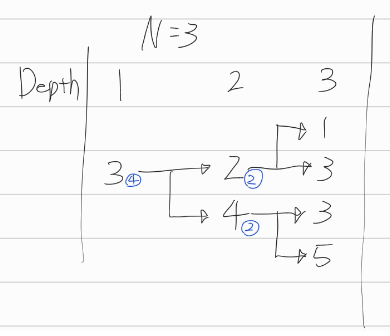 N=3
Depth 1 2 3
1
3 ④ 2 ② 3
4 ② 3
5